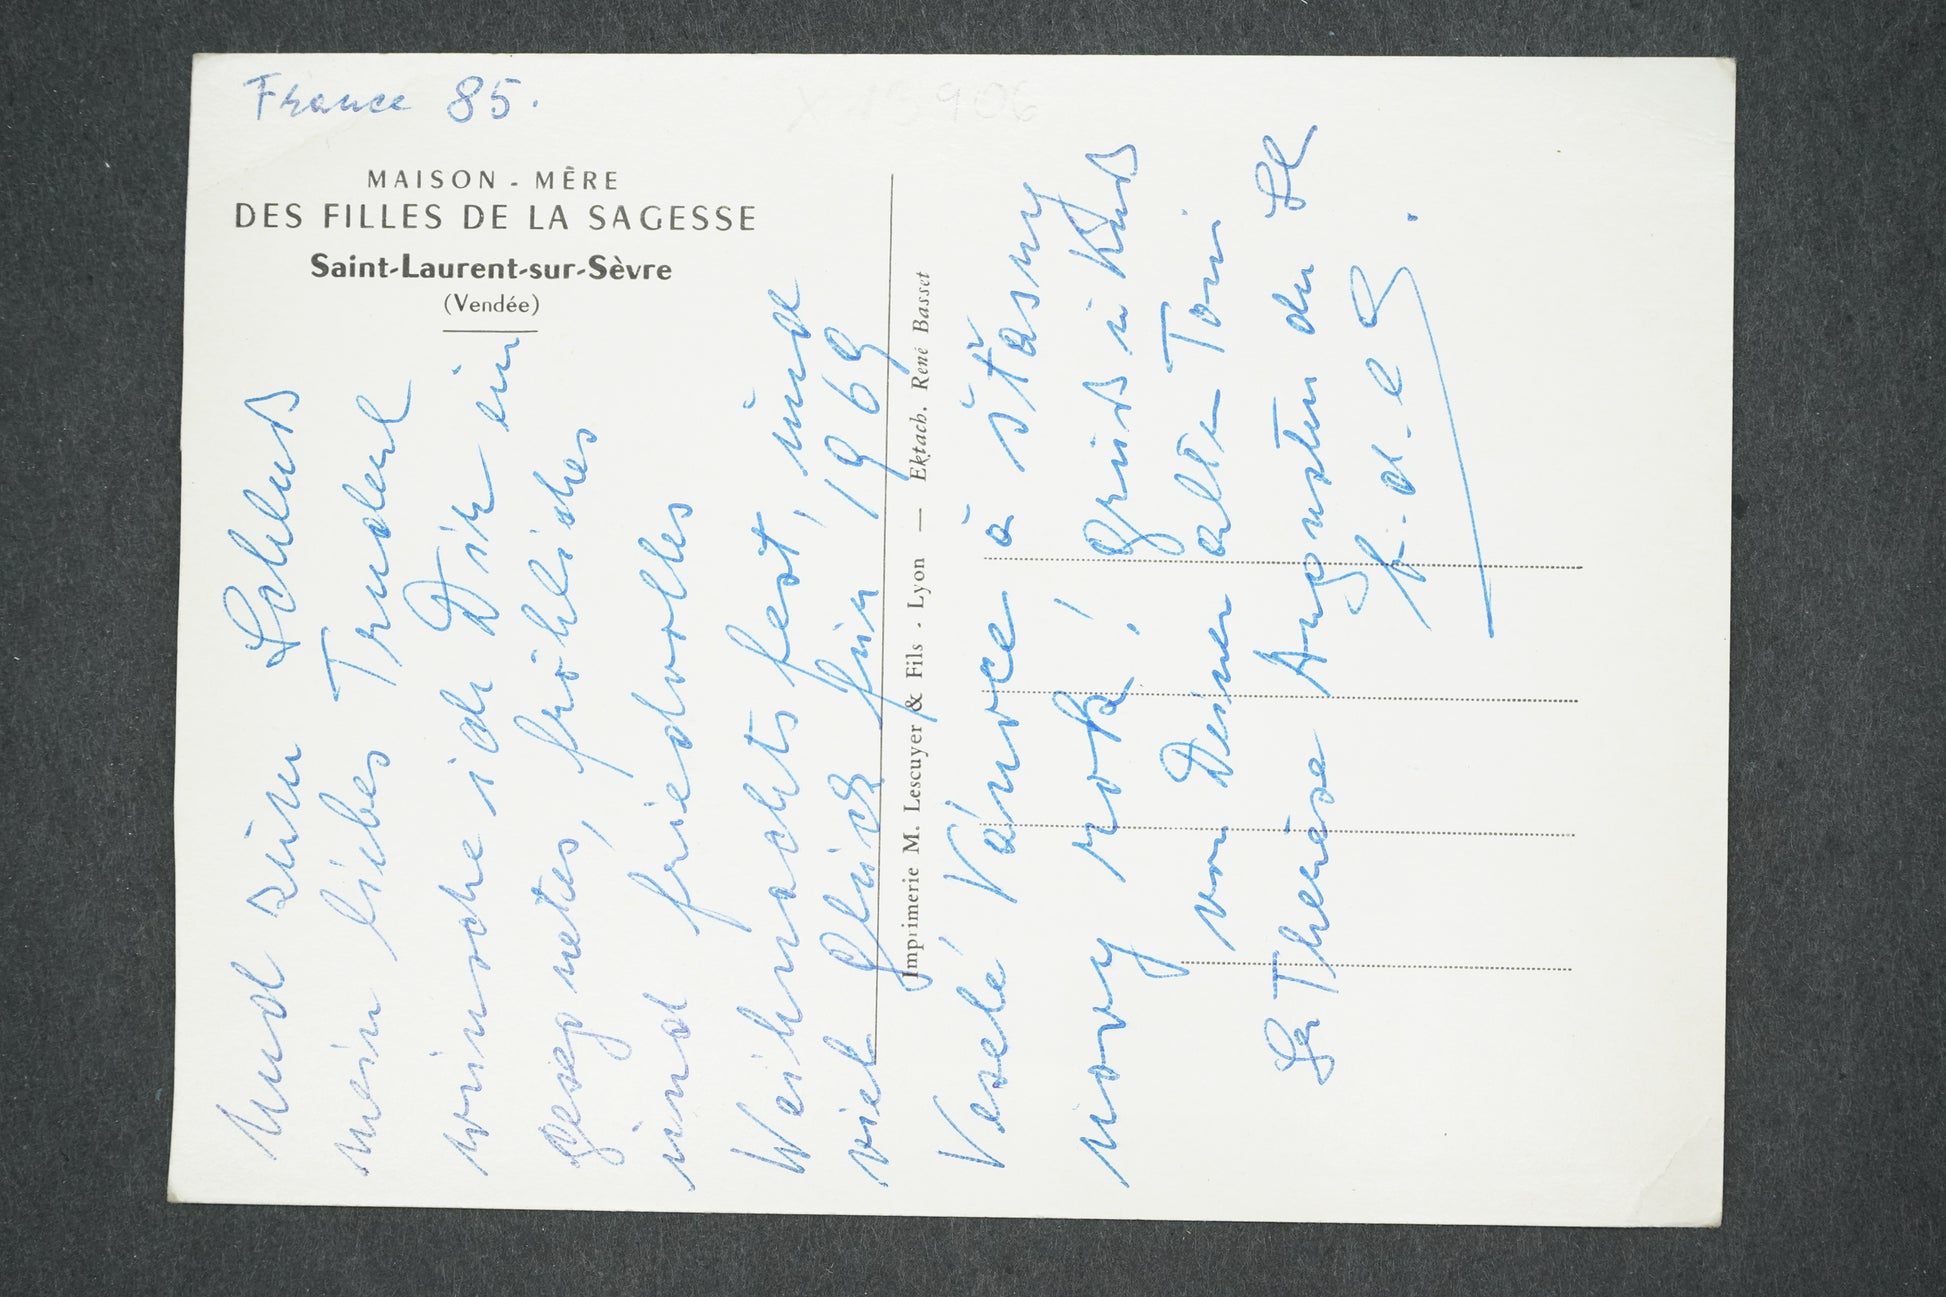 France 85.
MAISON - MÈRE
DES FILLES DE LA SAGESSE
Saint-Laurent-sur-Sèvre
(Vendée)
Imprimerie M. Lescuyer & Fils - Lyon — Ektach. René Basset
Und zum Schluss
mein liebes Truderl
wünsche ich Dir ein
gesegnetes, fröhliches
und friedvolles
Weihnachtsfest, und
viel Glück für 1969
Veselé Vánoce a šťasny
novy rok! Gruss u Kuss
von Deiner alten Toni
Sr Thérèse Augustin du
f. d. l. S.